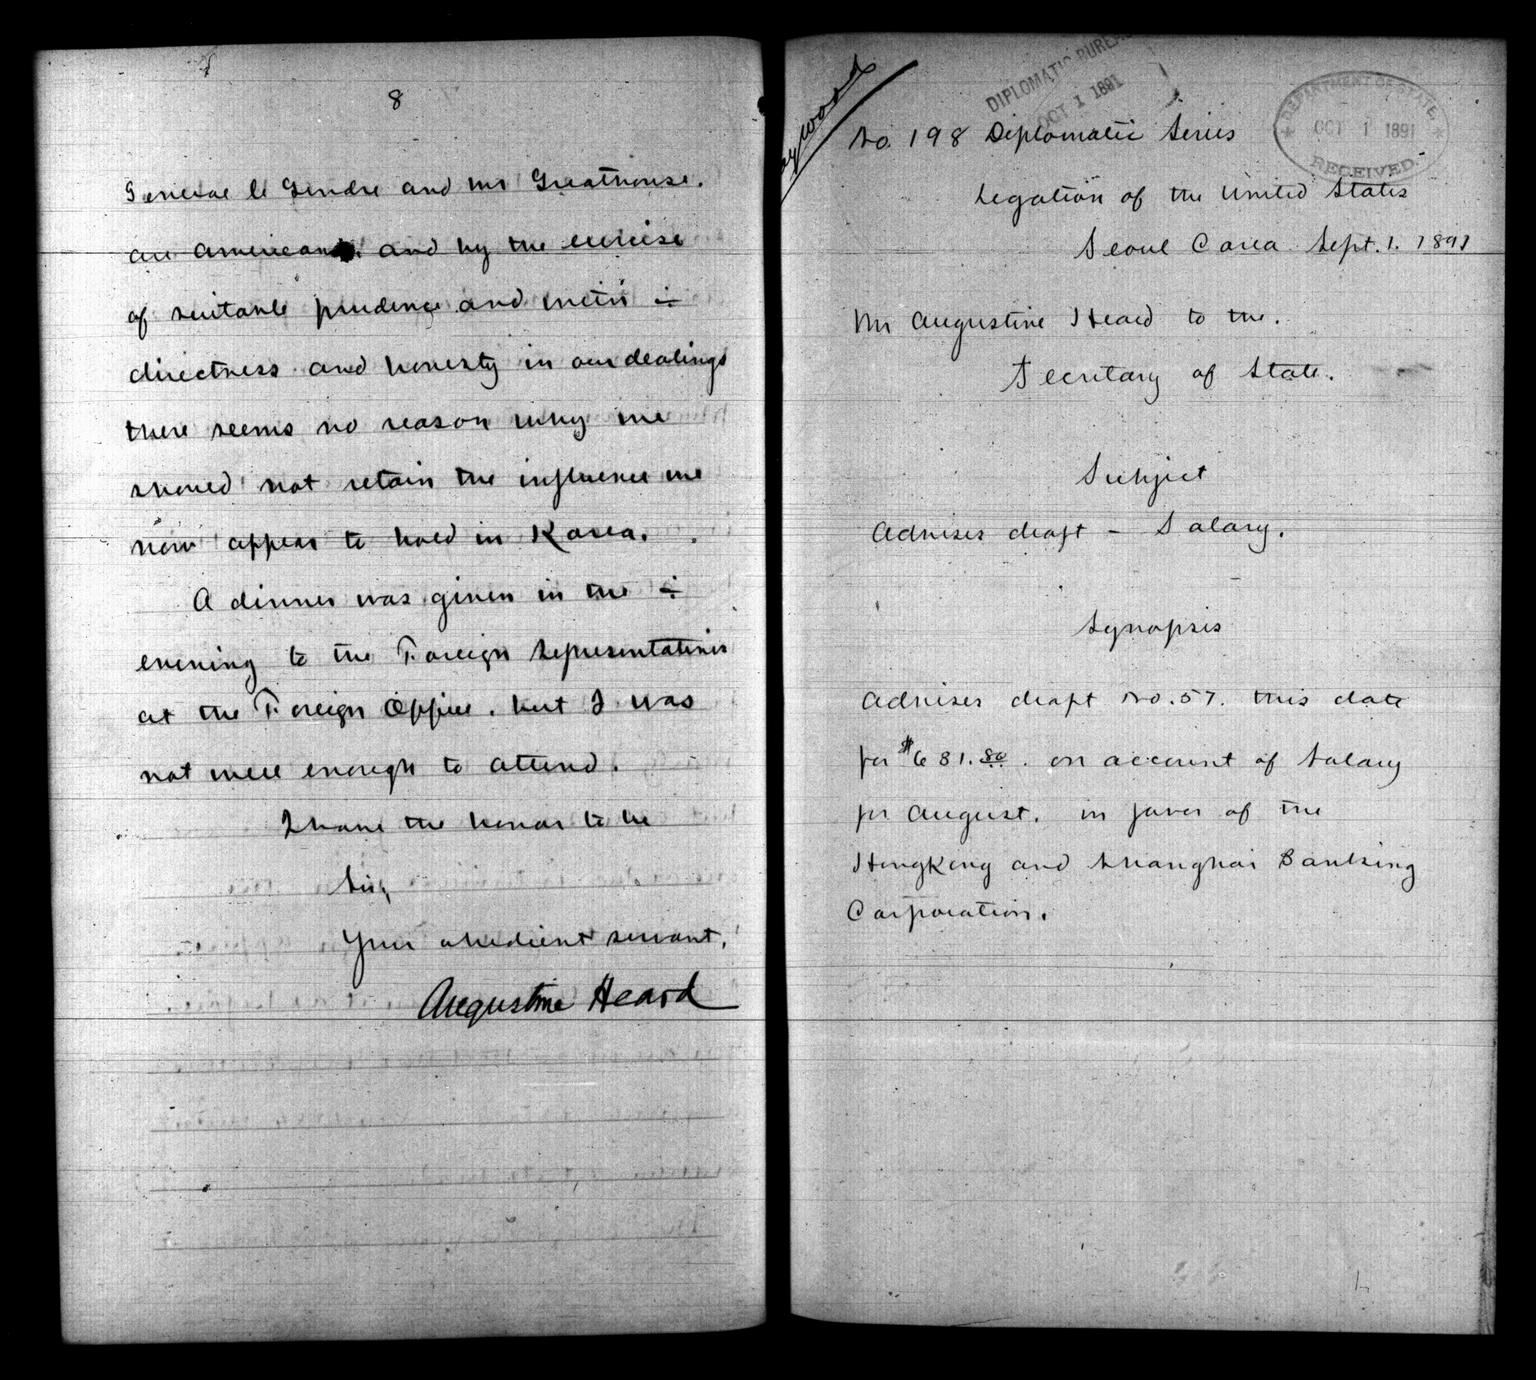 8
General Le Gendre and Mr Greathouse.
are Americans, and by the exercise
of suitable prudence and with
directness and honesty in our dealings
there seems no reason why we
should not retain the influence we
now appear to hold in Korea.
A dinner was given in the
evening to the Foreign Representatives
at the Foreign Office, but I was
not well enough to attend.
I have the honor to be
Sir,
Your obedient servant,
Augustine Heard
DIPLOMATIC BUREAU
OCT 1 1891
DEPARTMENT OF STATE,
OCT 1 1891
RECEIVED.
No. 198 Diplomatic Series
Legation of the United States
Seoul Corea Sept. 1. 1891
Mr Augustine Heard to the.
Secretary of State.
Subject
Advises draft - Salary.
Synopsis
Advises draft No. 57. this date
for $681.80. on account of Salary
for August. in favor of the
HongKong and Shanghai Banking
Corporation.